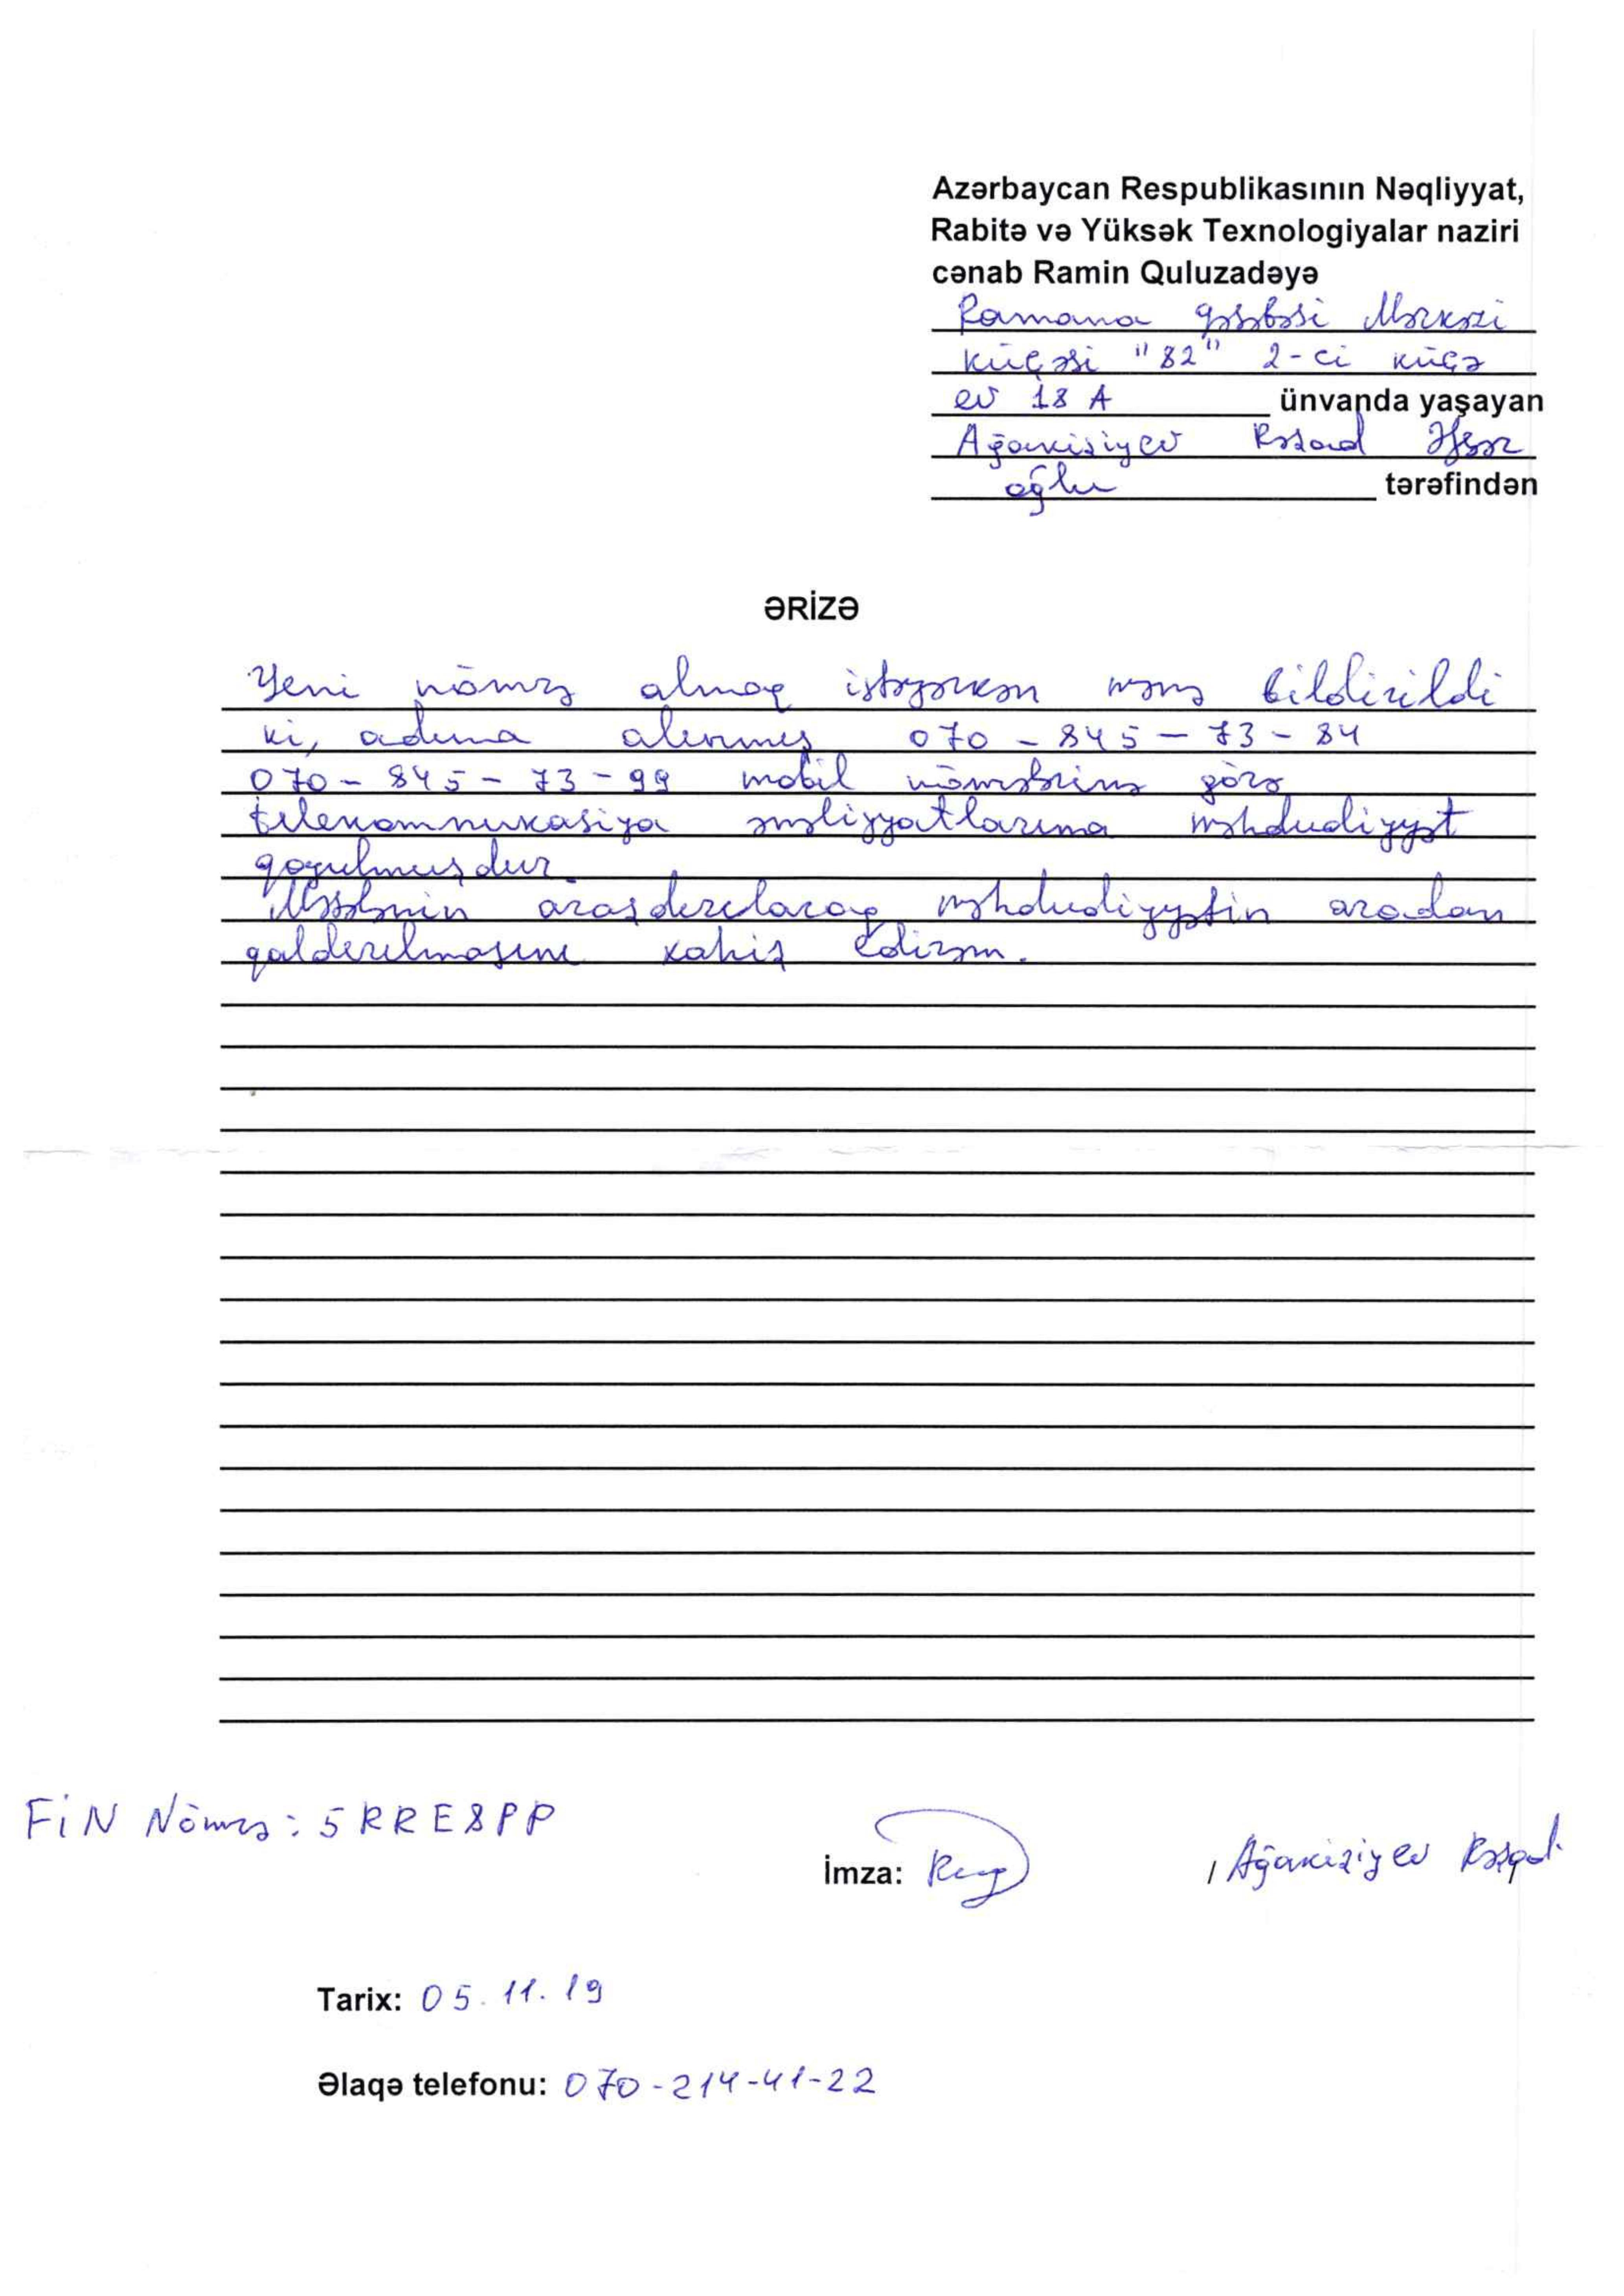 Azərbaycan Respublikasının Nəqliyyat,
Rabitə və Yüksək Texnologiyalar naziri
cənab Ramin Quluzadəyə
Ramana qəsəbəsi Mərkəzi
küçəsi "82" 2-ci küçə
ev 18 A ünvanda yaşayan
Ağakişiyev Rəşad
oğlu tərəfindən
ƏRİZƏ
Yeni nömrə almaq istəyərkən mənə bildirildi
ki, adıma alınmış 070 - 845 - 73 - 84
070 - 845 - 73 - 99 mobil nömrələrinə görə
telekommukasiya əməliyyatlarıma məhdudiyyət
qoyulmuşdur.
Məsələnin araşdırılaraq məhdudiyyətin aradan
qaldırılmasını xahiş edirəm.
FİN Nömrə: 5RRE8PP
İmza: / Ağakişiyev Rəşad.
Tarix: 05.11.19
Əlaqə telefonu: 070-214-41-22